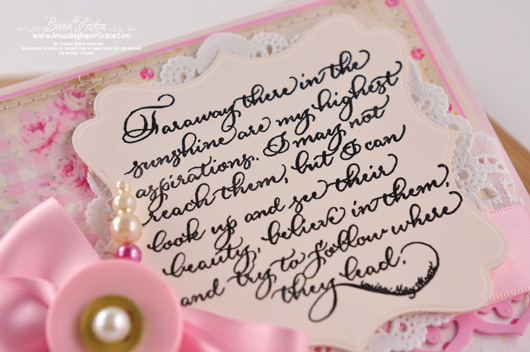 www.AmazingPaperGrace.com
Faraway there in the
sunshine are my highest
aspirations. I may not
reach them, but I can
look up and see their
beauty, believe in them,
and try to follow where
they lead.
Louisa May Alcott